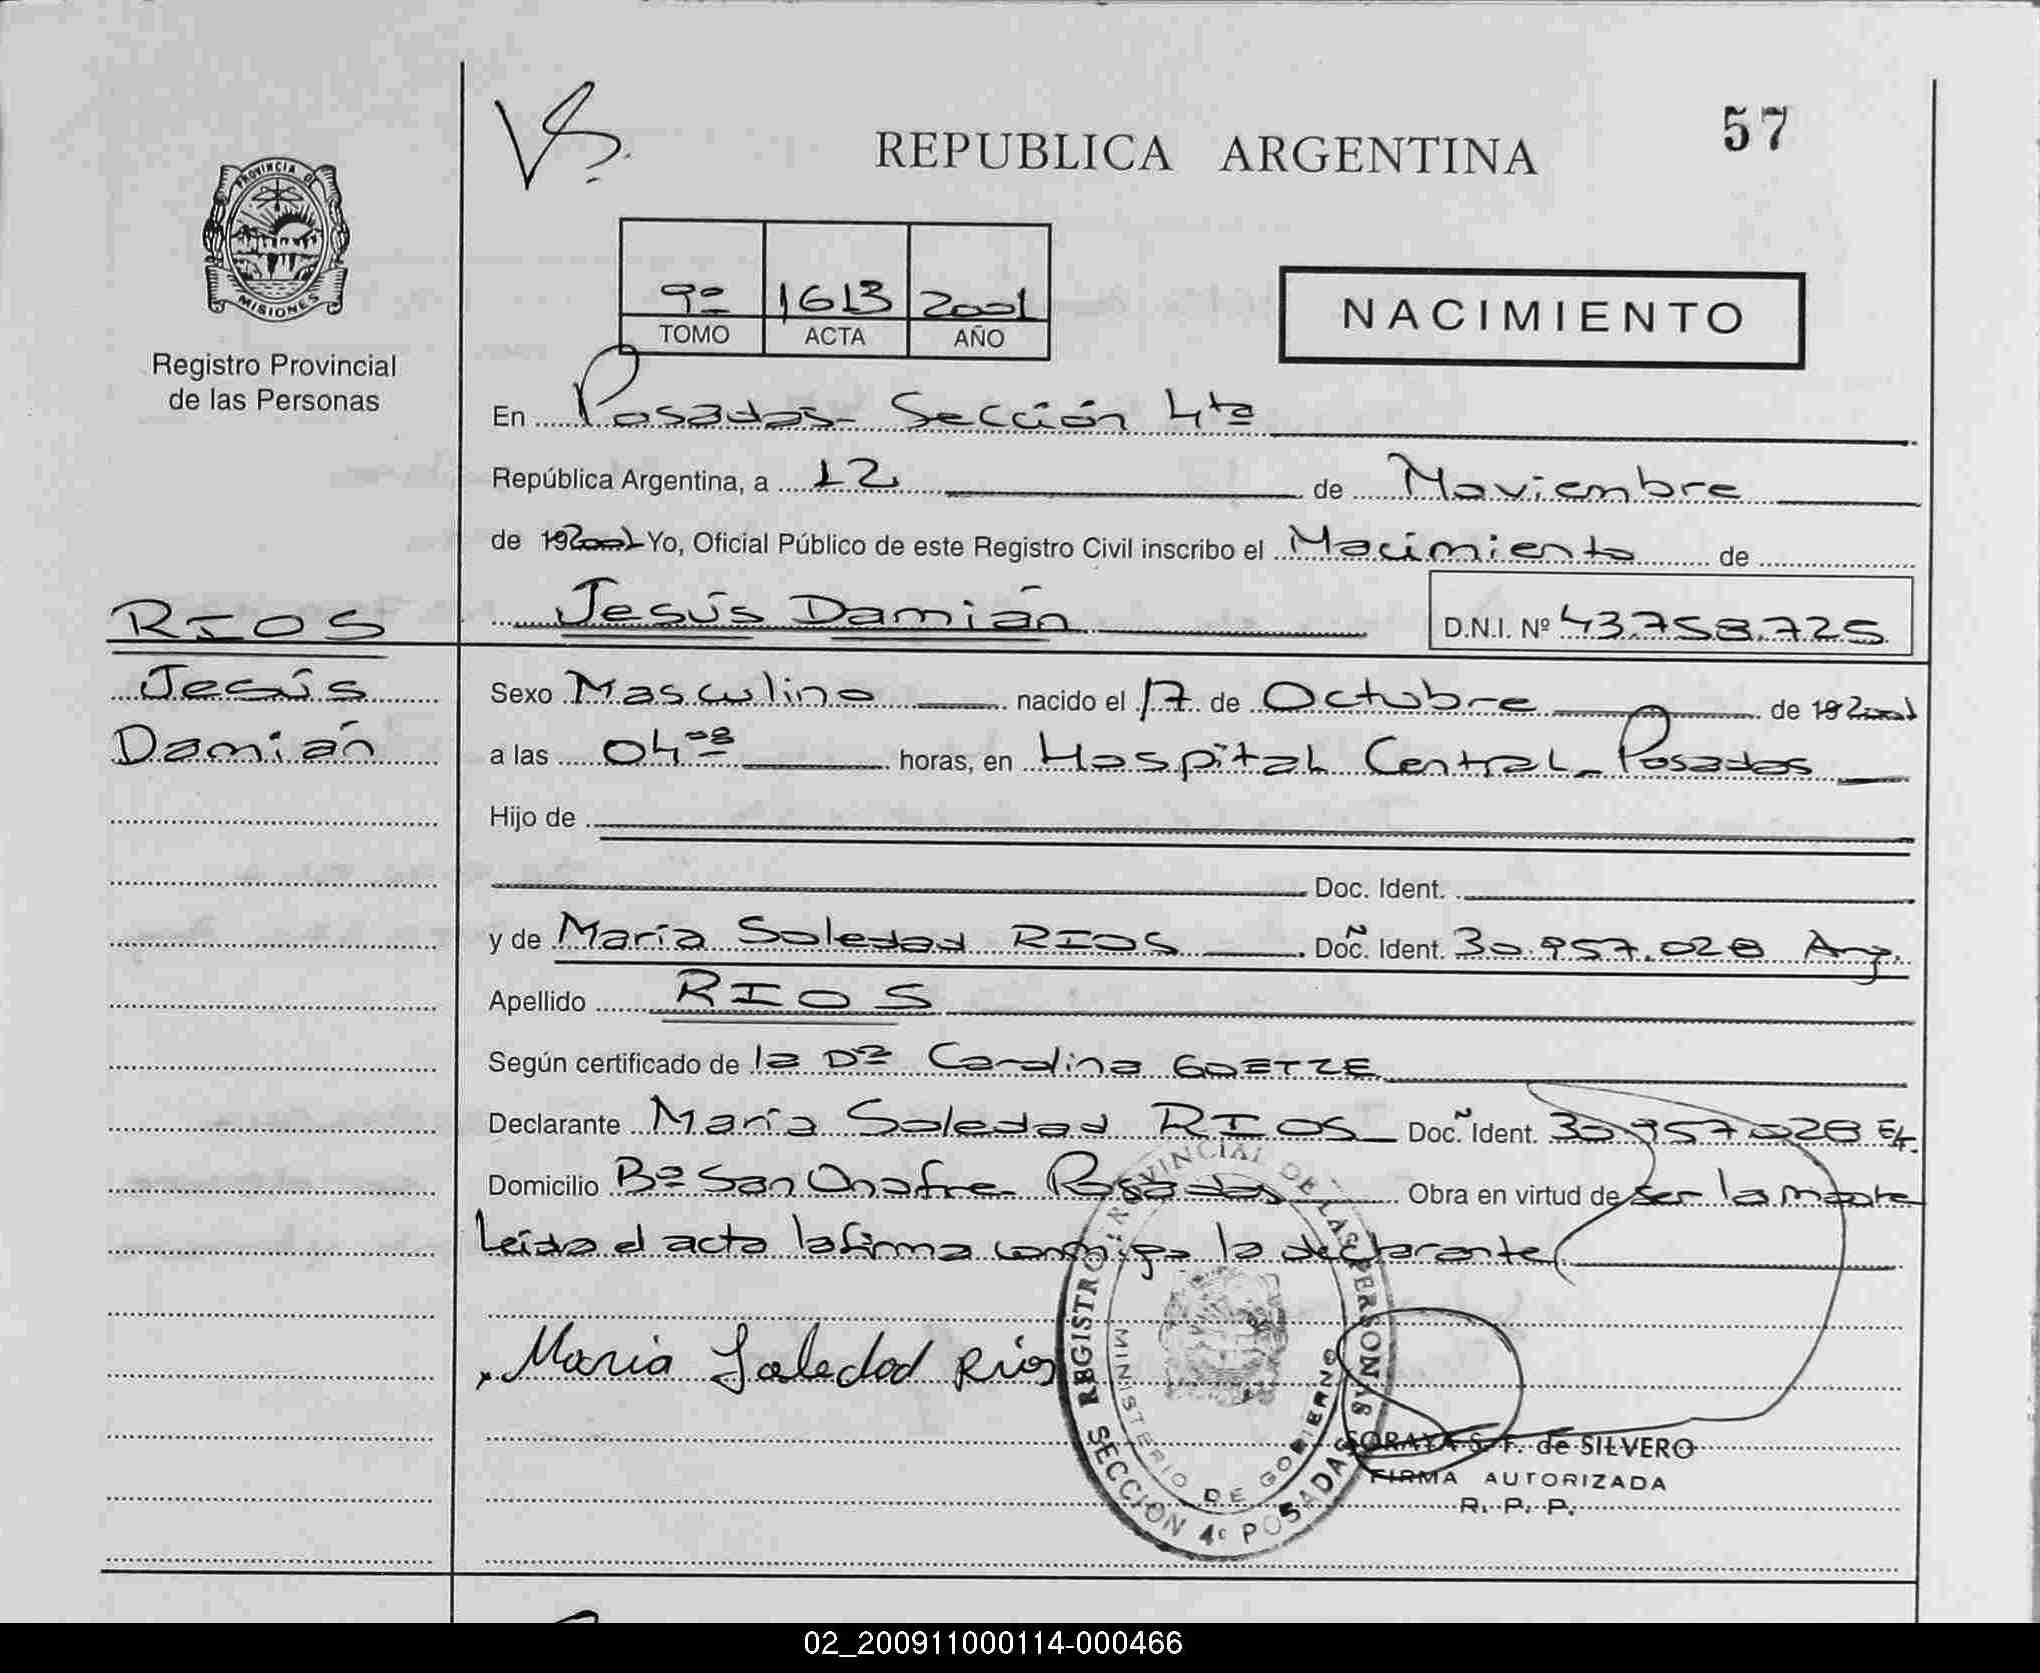 57
REPUBLICA ARGENTINA
PROVINCIA DE
MISIONES
Registro Provincial
de las Personas
9º 1613 2001
TOMO ACTA AÑO
NACIMIENTO
En Posadas - Sección 4ta
República Argentina, a 12 de Noviembre
de 192001 Yo, Oficial Público de este Registro Civil inscribo el Nacimiento de
Jesús Damián D.N.I. Nº 43.758.725
RIOS
Jesús
Damián
Sexo Masculino nacido el 17 de Octubre de 192001
a las 04 horas, en Hospital Central - Posadas
Hijo de
Doc. Ident.
y de María Soledad RIOS Doc. Ident. 30.957.028 Arg.
Apellido RIOS
Según certificado de la Dra Carolina GOETZE
Declarante María Soledad RIOS Doc. Ident. 30957028
Domicilio Bº San Onofre - Posadas Obra en virtud de ser la madre
Leída el acta la firma conmigo la declarante
Maria Soledad Rios
REGISTRO PROVINCIAL DE LAS PERSONAS
MINISTERIO DE GOBIERNO
SECCION 4º POSADAS
SORAYA S. F. de SILVERO
FIRMA AUTORIZADA
R. P. P.
02_200911000114-000466